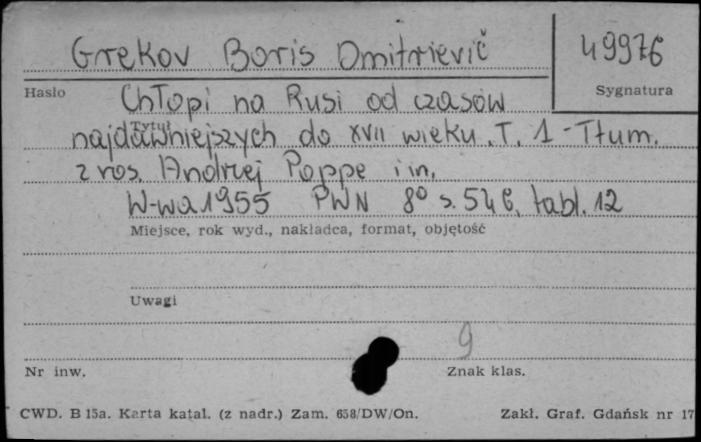 Grekov Boris Dmitrievič
49976
Hasło
Sygnatura
Chłopi na Rusi od czasów
Tytuł
najdawniejszych do XVII wieku. T. 1 - Tłum.
z ros. Andrzej Poppe i in.
W-wa 1955 PWN 8° s. 546, tabl. 12
Miejsce, rok wyd., nakładca, format, objętość
Uwagi
9
Nr inw.
Znak klas.
CWD. B 15a. Karta katal. (z nadr.) Zam. 658/DW/On.
Zakł. Graf. Gdańsk nr 17